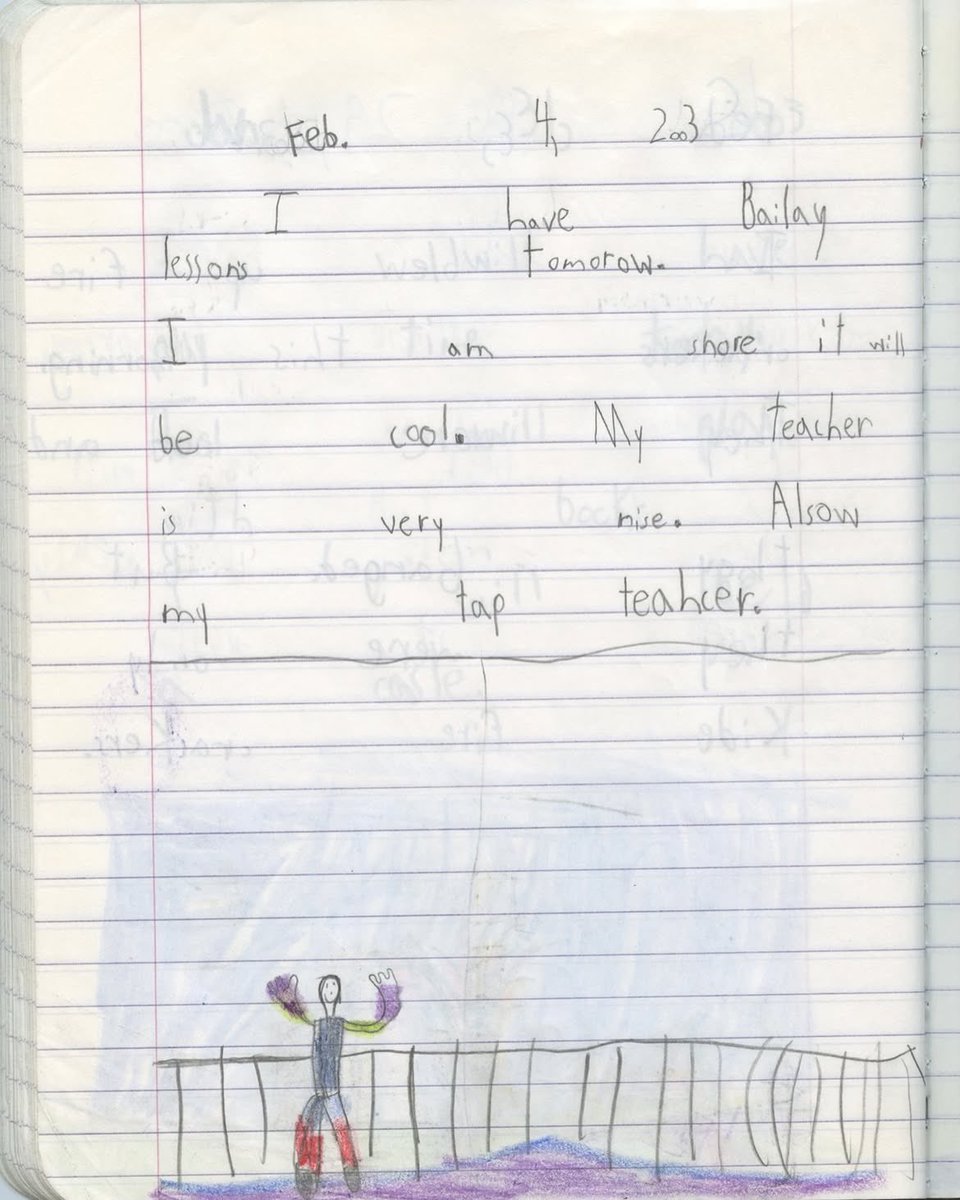 Feb. 4, 2003
I have Bailay
lessons tomorow.
I am shore it will
be cool. My teacher
is very nise. Alsow
my tap teahcer.